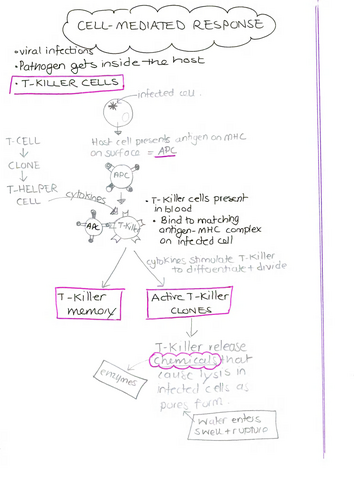 CELL-MEDIATED RESPONSE
• viral infections
• Pathogen gets inside the host
• T-KILLER CELLS
infected cell.
Host cell presents antigen on MHC
on surface = APC
APC
T-CELL
CLONE
T-HELPER
CELL
cytokines
APC
T-Killer
• T-Killer cells present
in blood
• Bind to matching
antigen-MHC complex
on infected cell
cytokines stimulate T-Killer
to differentiate + divide
T-Killer
memory
Active T-Killer
CLONES
T-Killer release
chemicals that
cause lysis in
infected cells as
pores form.
enzymes
Water enters
swell + rupture